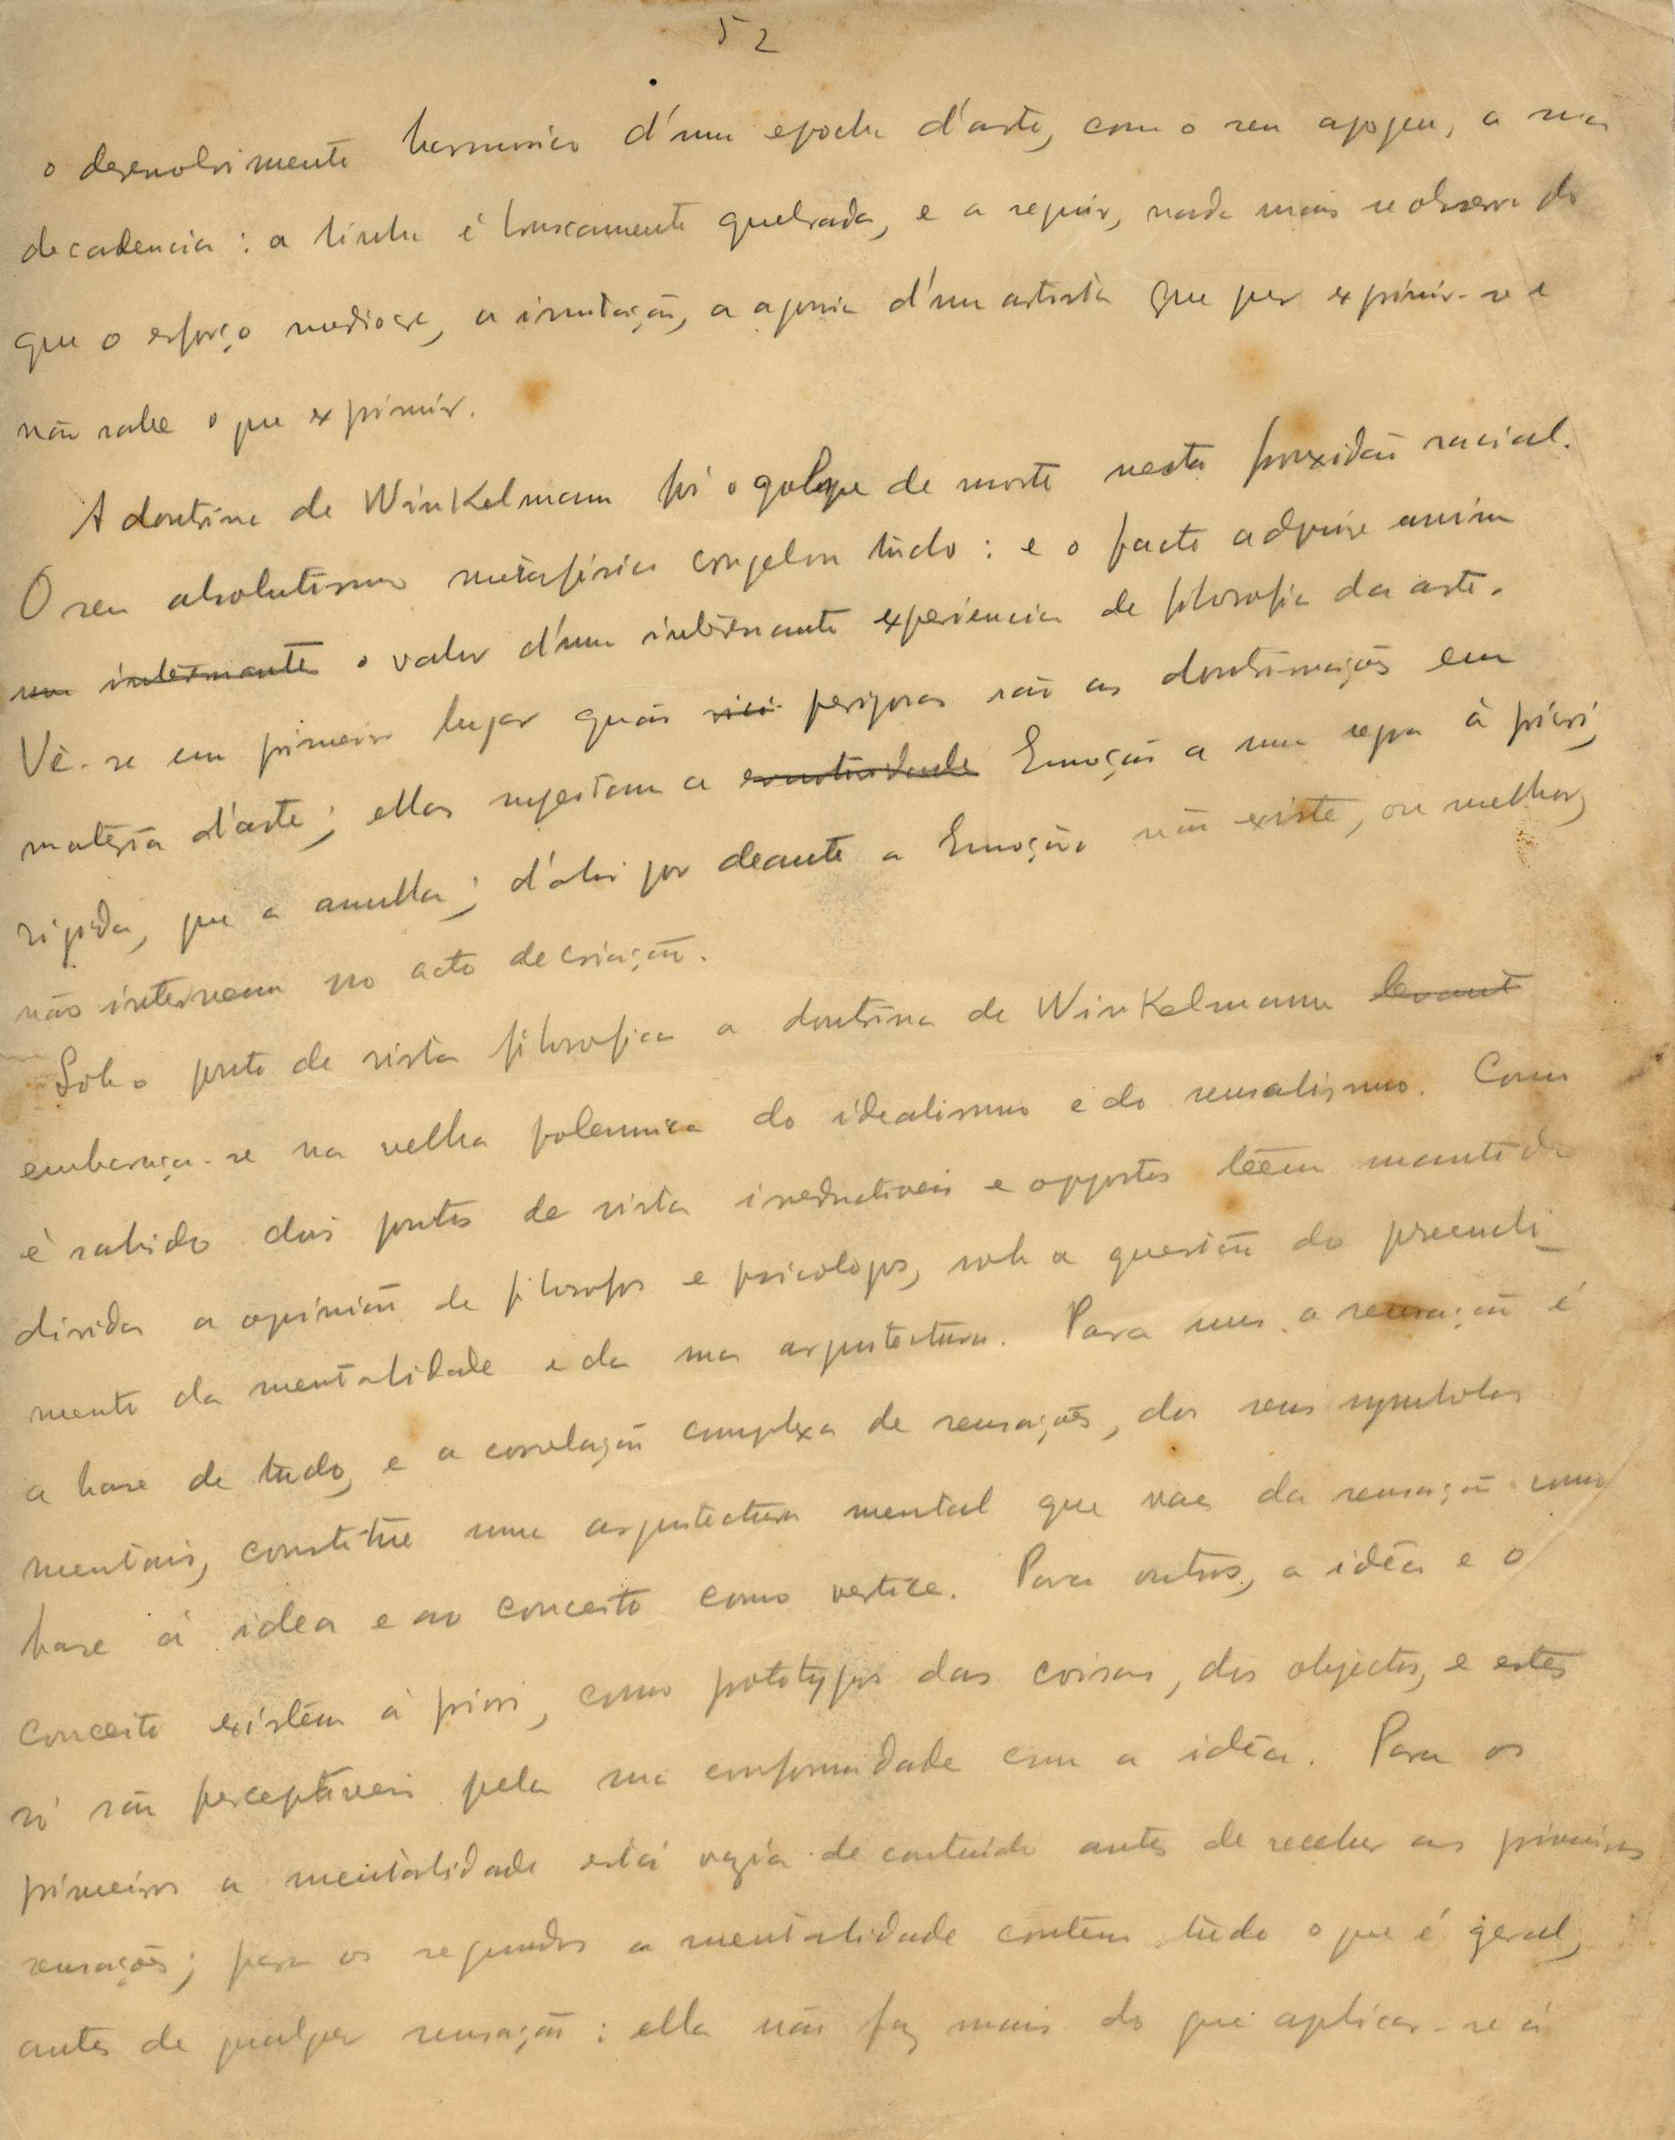 52
o desenvolvimento harmonico d'uma epocha d'arte, com o seu apogeu, a sua
decadencia : a linha é bruscamente quebrada, e a seguir, nada mais se observa do
que o esforço mediocre, a imitação, a agonia d'um artista que quer exprimir-se e
não sabe o que exprimir.
A doutrina de Winkelmann foi o golpe de morte nesta
 racial.
O seu absolutismo metafísico congelou tudo : e o facto adquire assim
um interessante o valor d'uma interessante experiencia de filosofia da arte.
Vê-se em primeiro lugar quão perigosas são as doutrinações em
materia d'arte ; ellas sujeitam a emotividade Emoção a uma regra à priori,
rigida, que a anulla ; d'ahi por deante a Emoção não existe, ou melhor,
não intervem no acto de criação.
Sob o ponto de vista filosofico a doutrina de Winkelmann levant
embaraça-se na velha polemica do idealismo e do sensalismo. Como
é sabido dois pontos de vista irreductiveis e oppostos têem mantido
dividida a opinião de filosofos e psicologos, sob a questão do preenchi_
mento da mentalidade e da sua arquitectura. Para uns a sensação é
a base de tudo, e a correlação complexa de sensações, dos seus symbolos
mentais, constitue uma arquitectura mental que vae da sensação como
base á idea e ao conceito como vertice. Para outros, a idéa e o
conceito existem à priori, como prototypos das coisas, dos objectos, e estes
só são perceptiveis pela sua conformidade com a idéa. Para os
primeiros a mentalidade está vazia de conteúdo antes de receber as primeiras
sensações ; para os segundos a mentalidade contem tudo o que é geral,
antes de qualquer sensação : ella não faz mais do que aplicar-se á